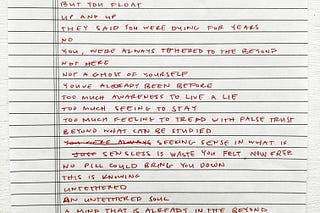 BUT YOU FLOAT
UP AND UP
THEY SAID YOU WERE DYING FOR YEARS
NO
YOU, WERE ALWAYS TETHERED TO THE BEYOND
NOT HERE
NOT A GHOST OF YOURSELF
YOU'VE ALREADY BEEN BEFORE
TOO MUCH AWARENESS TO LIVE A LIE
TOO MUCH SEEING TO STAY
TOO MUCH FEELING TO TREAD WITH FALSE TRUST
BEYOND WHAT CAN BE STUDIED
YOU WERE ALWAYS SEEKING SENSE IN WHAT IS
JUST SENSLESS IS WASTE YOU FELT, NOW FREE
NO PILL COULD BRING YOU DOWN
THIS IS KNOWING
UNTETHERED
AN UNTETHERED SOUL
A MIND THAT IS ALREADY IN THE BEYOND